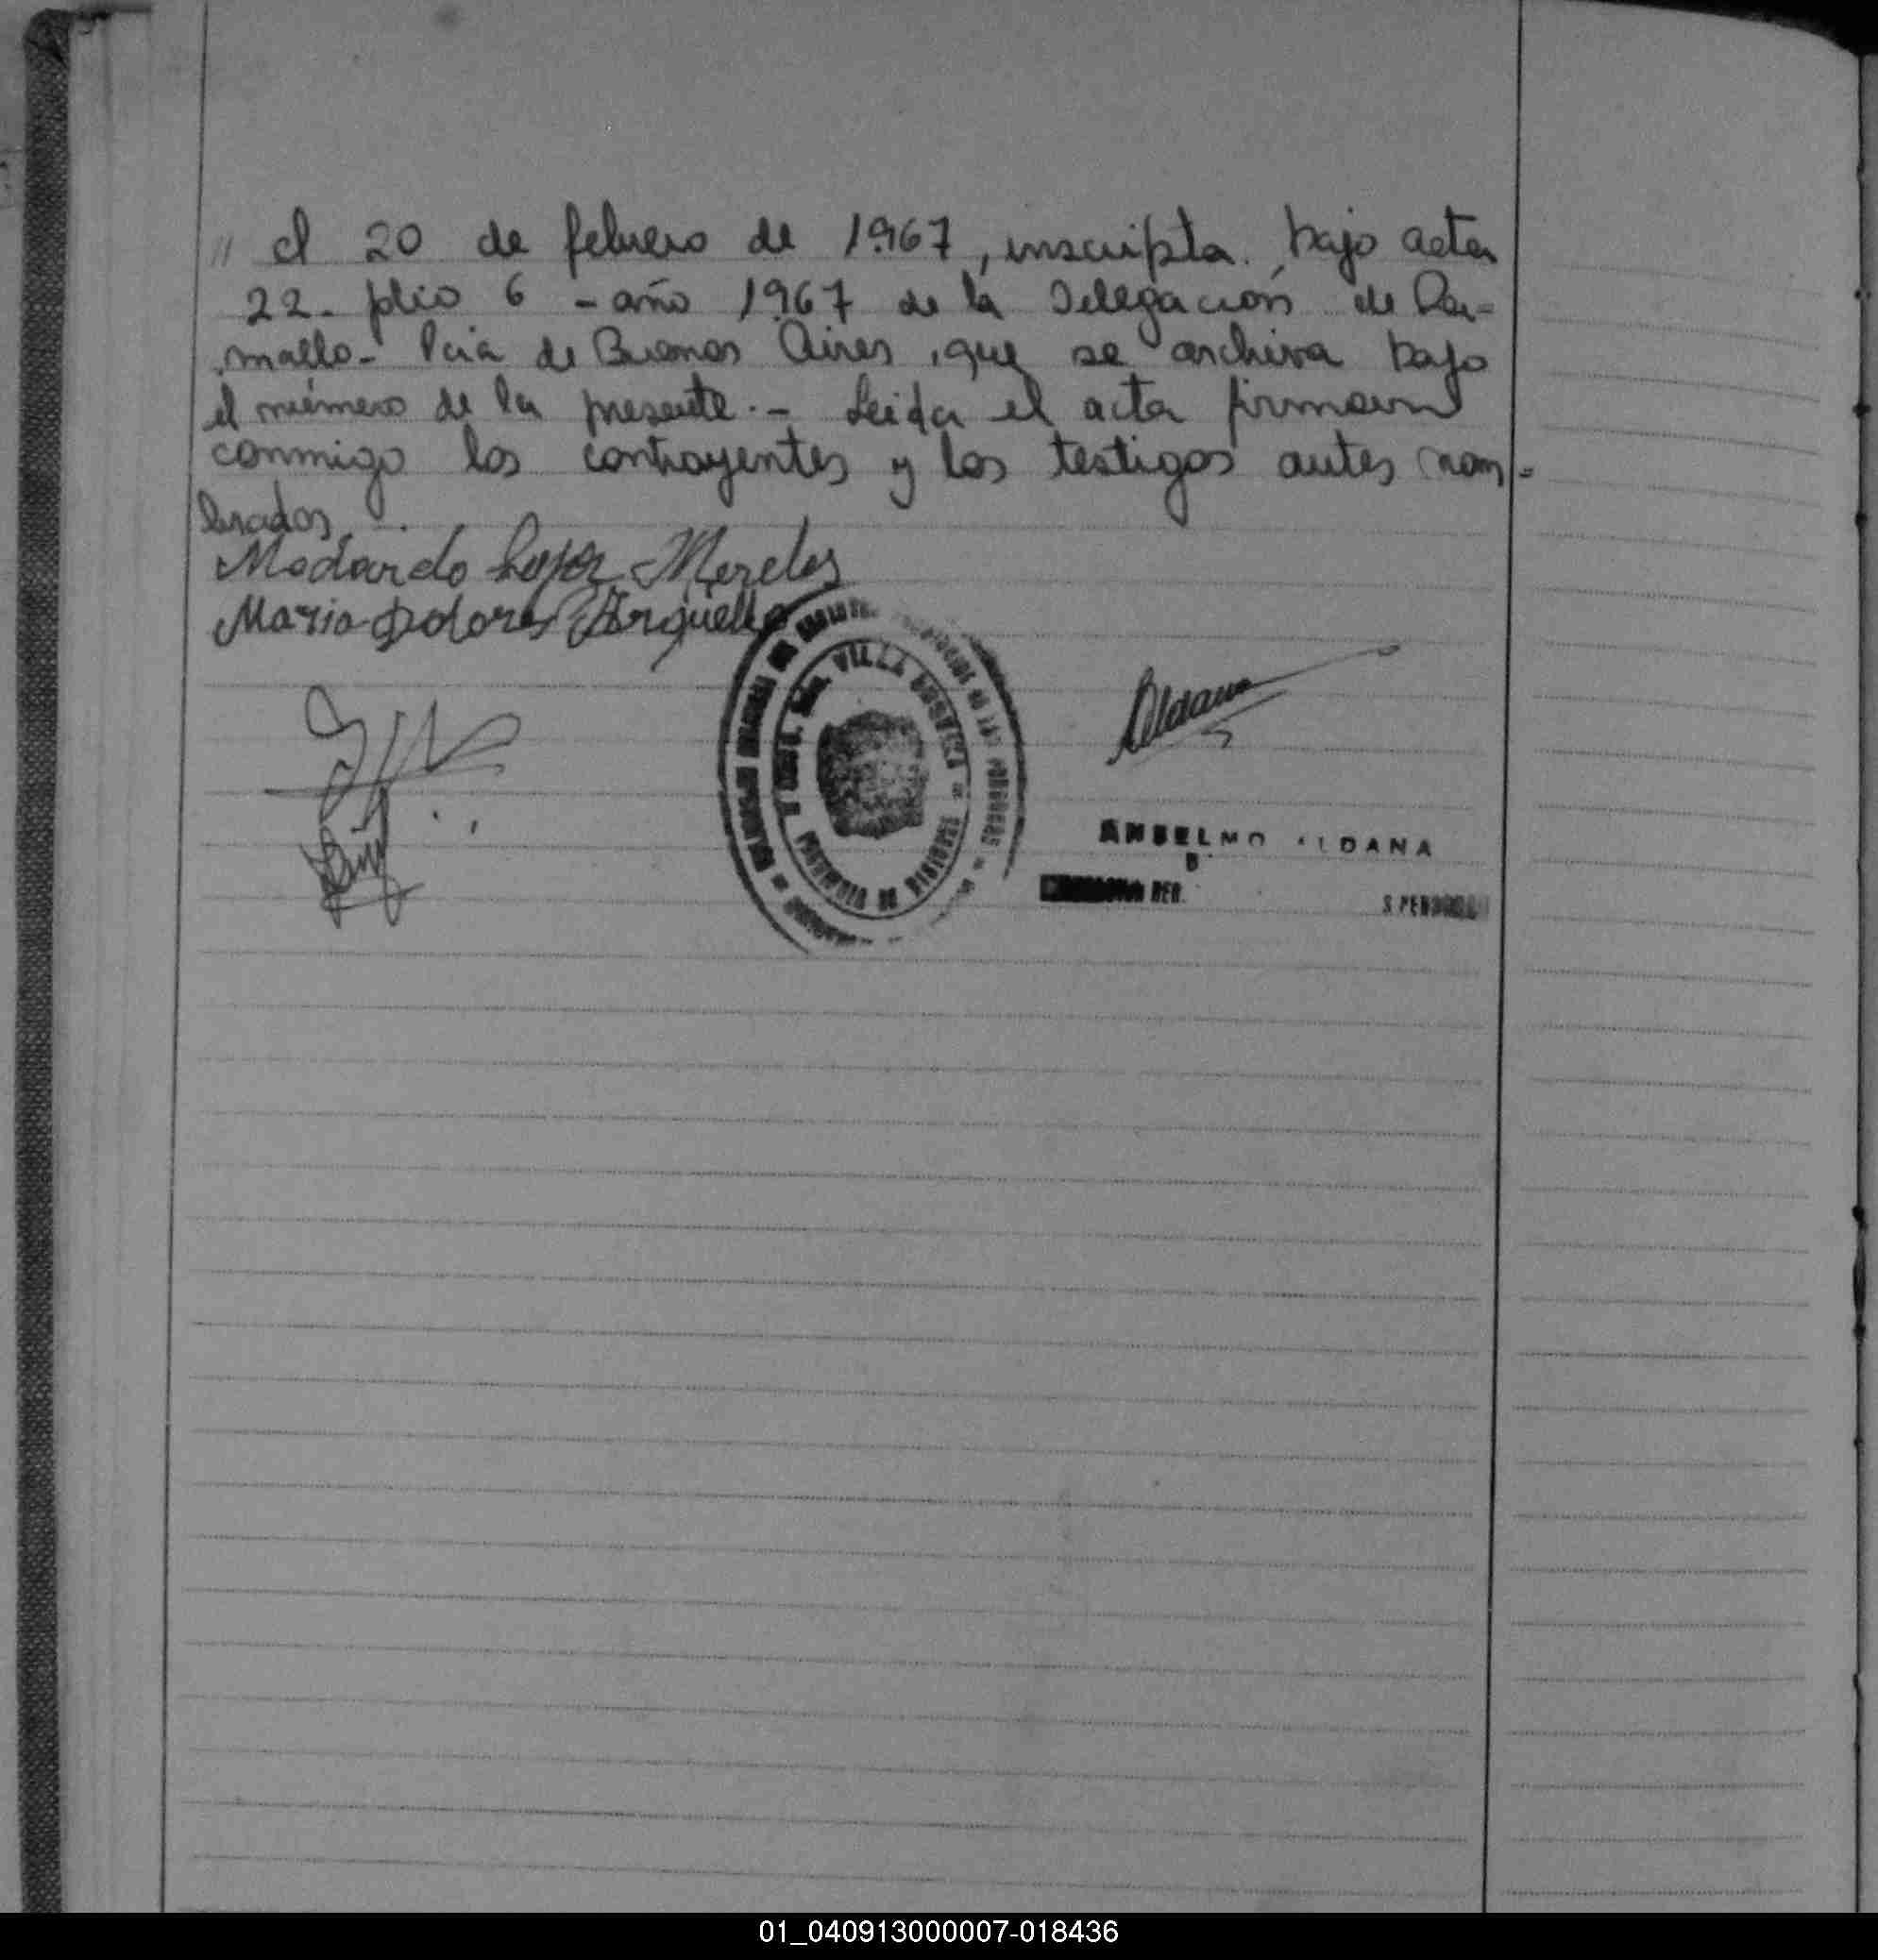 // el 20 de febrero de 1967, inscripta bajo acta
22- folio 6 - año 1967 de la Delegación de Ra=
mallo- Pcia de Buenos Aires, que se archiva bajo
el número de la presente.- Leida el acta firman
conmigo los contrayentes y los testigos antes nom=
brados.
Medardo Lopez Mereles
Maria Dolores Arguello
VILLA
PROVINCIA DE
DE LAS PERSONAS
Aldana
ANSELMO ALDANA
REG. S PERSONAS
01_040913000007-018436